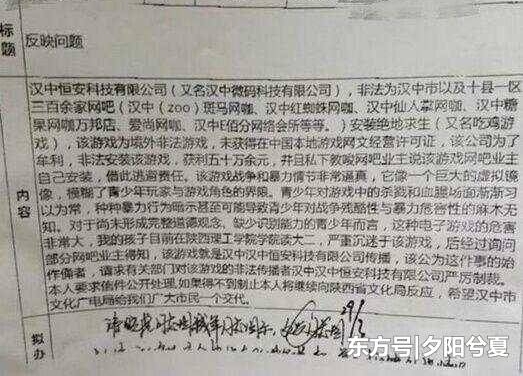 标题
反映问题
汉中恒安科技有限公司（又名汉中微码科技有限公司），非法为汉中市以及十县一区
三百余家网吧（汉中（zoo）斑马网咖、汉中红蜘蛛网咖、汉中仙人掌网咖、汉中糖
果网咖万邦店、爱尚网咖、汉中E佰分网络会所等等。）安装绝地求生（又名吃鸡游
戏），该游戏为境外非法游戏，未获得在中国本地游戏网文经营许可证，该公司为了
牟利，非法安装该游戏，获利五十万余元，并且私下教唆网吧业主说该游戏网吧业主
自己安装，借此逃避责任。该游戏战争和暴力情节非常逼真，它像一个巨大的虚拟镜
像，模糊了青少年玩家与游戏角色的界限。青少年对游戏中的杀戮和血腥场面渐渐习
以为常，种种暴力行为暗示甚至可能导致青少年对战争残酷性与暴力危害性的麻木无
知。对于尚未形成完整道德观念、缺少识别能力的青少年而言，这种电子游戏的危害
非常大，我的孩子目前在陕西理工学院学院读大二，严重沉迷于该游戏，后经过询问
部分网吧业主得知，该游戏就是汉中汉中恒安科技有限公司传播，该公为这件事的始
作俑者，请求有关部门对该游戏的非法传播者汉中汉中恒安科技有限公司严厉制裁。
本人要求信件公开处理,如果得不到制止本人将继续向陕西省文化局反应，希望汉中市
文化广电局给我们广大市民一个交代。
内容
拟办
东方号|夕阳兮夏